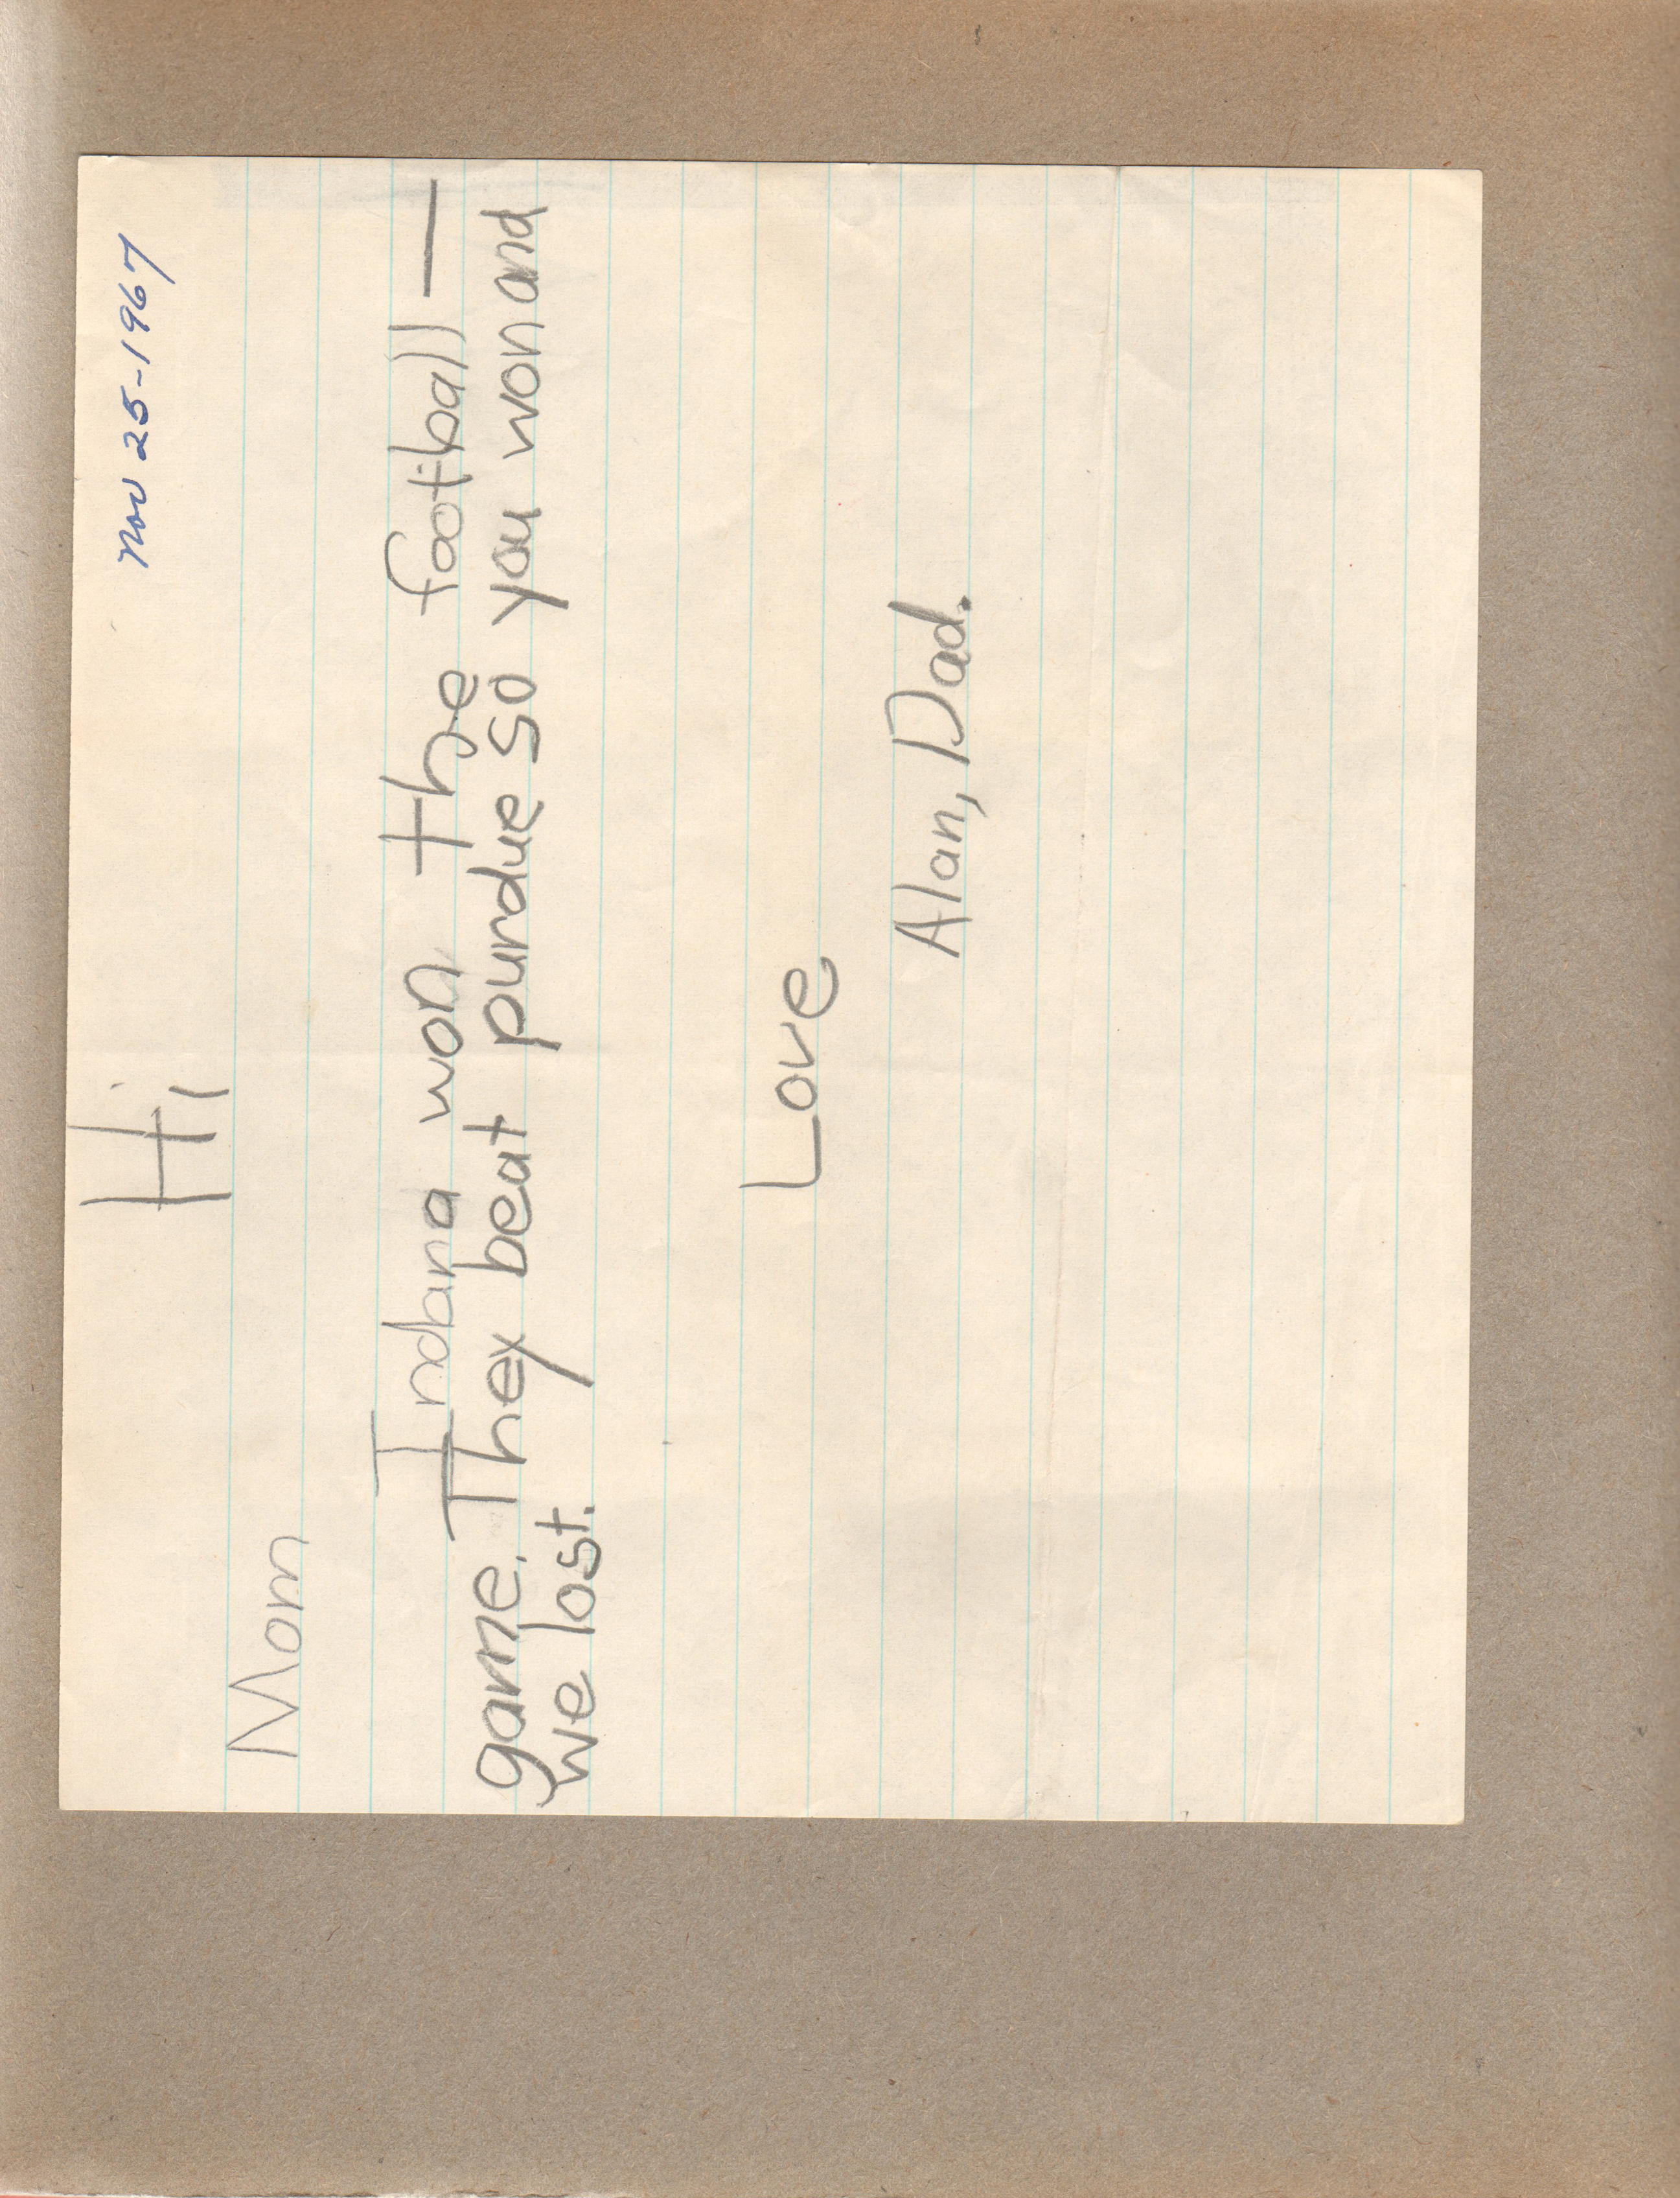 Nov 25-1967
Hi
Mom
Indana won the football—
game. They beat purdue so you won and
we lost.
Love
Alan, Dad.